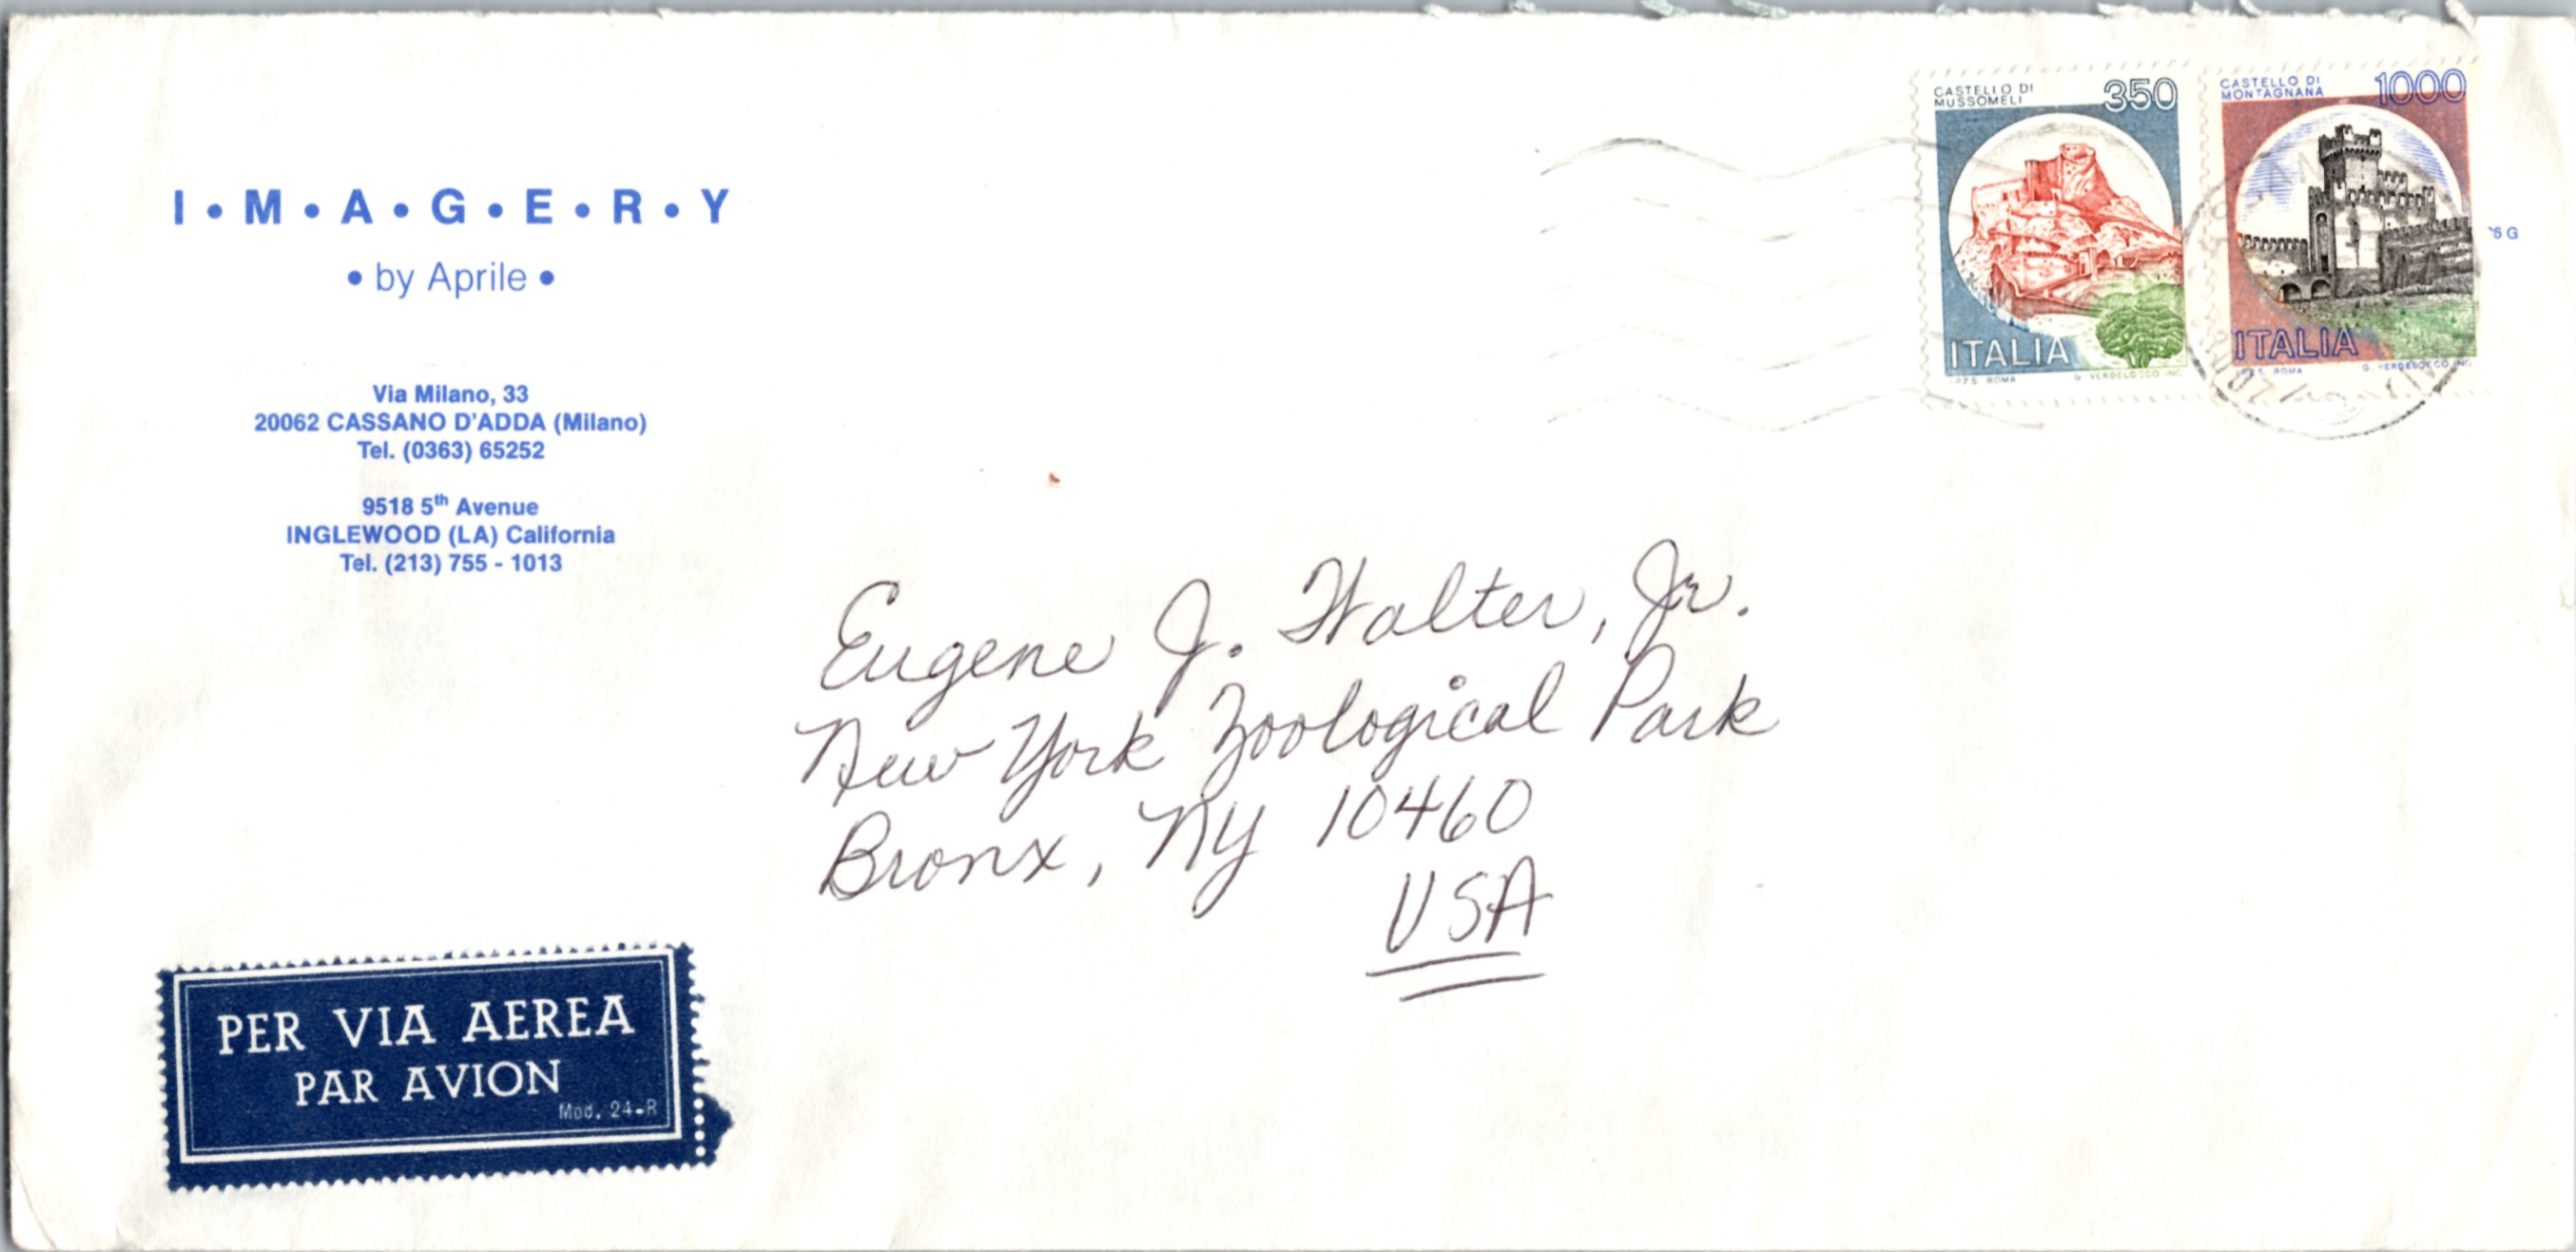 I • M • A • G • E • R • Y
• by Aprile •
Via Milano, 33
20062 CASSANO D'ADDA (Milano)
Tel. (0363) 65252
9518 5th Avenue
INGLEWOOD (LA) California
Tel. (213) 755 - 1013
CASTELLO DI
MUSSOMELI
350
ITALIA
ROMA G. VERDELOCCO INC.
CASTELLO DI
MONTAGNANA
1000
ITALIA
ROMA G. VERDELOCCO INC.
6 G
Eugene J. Walter, Jr.
New York Zoological Park
Bronx, NY 10460
USA
PER VIA AEREA
PAR AVION
Mod. 24-R